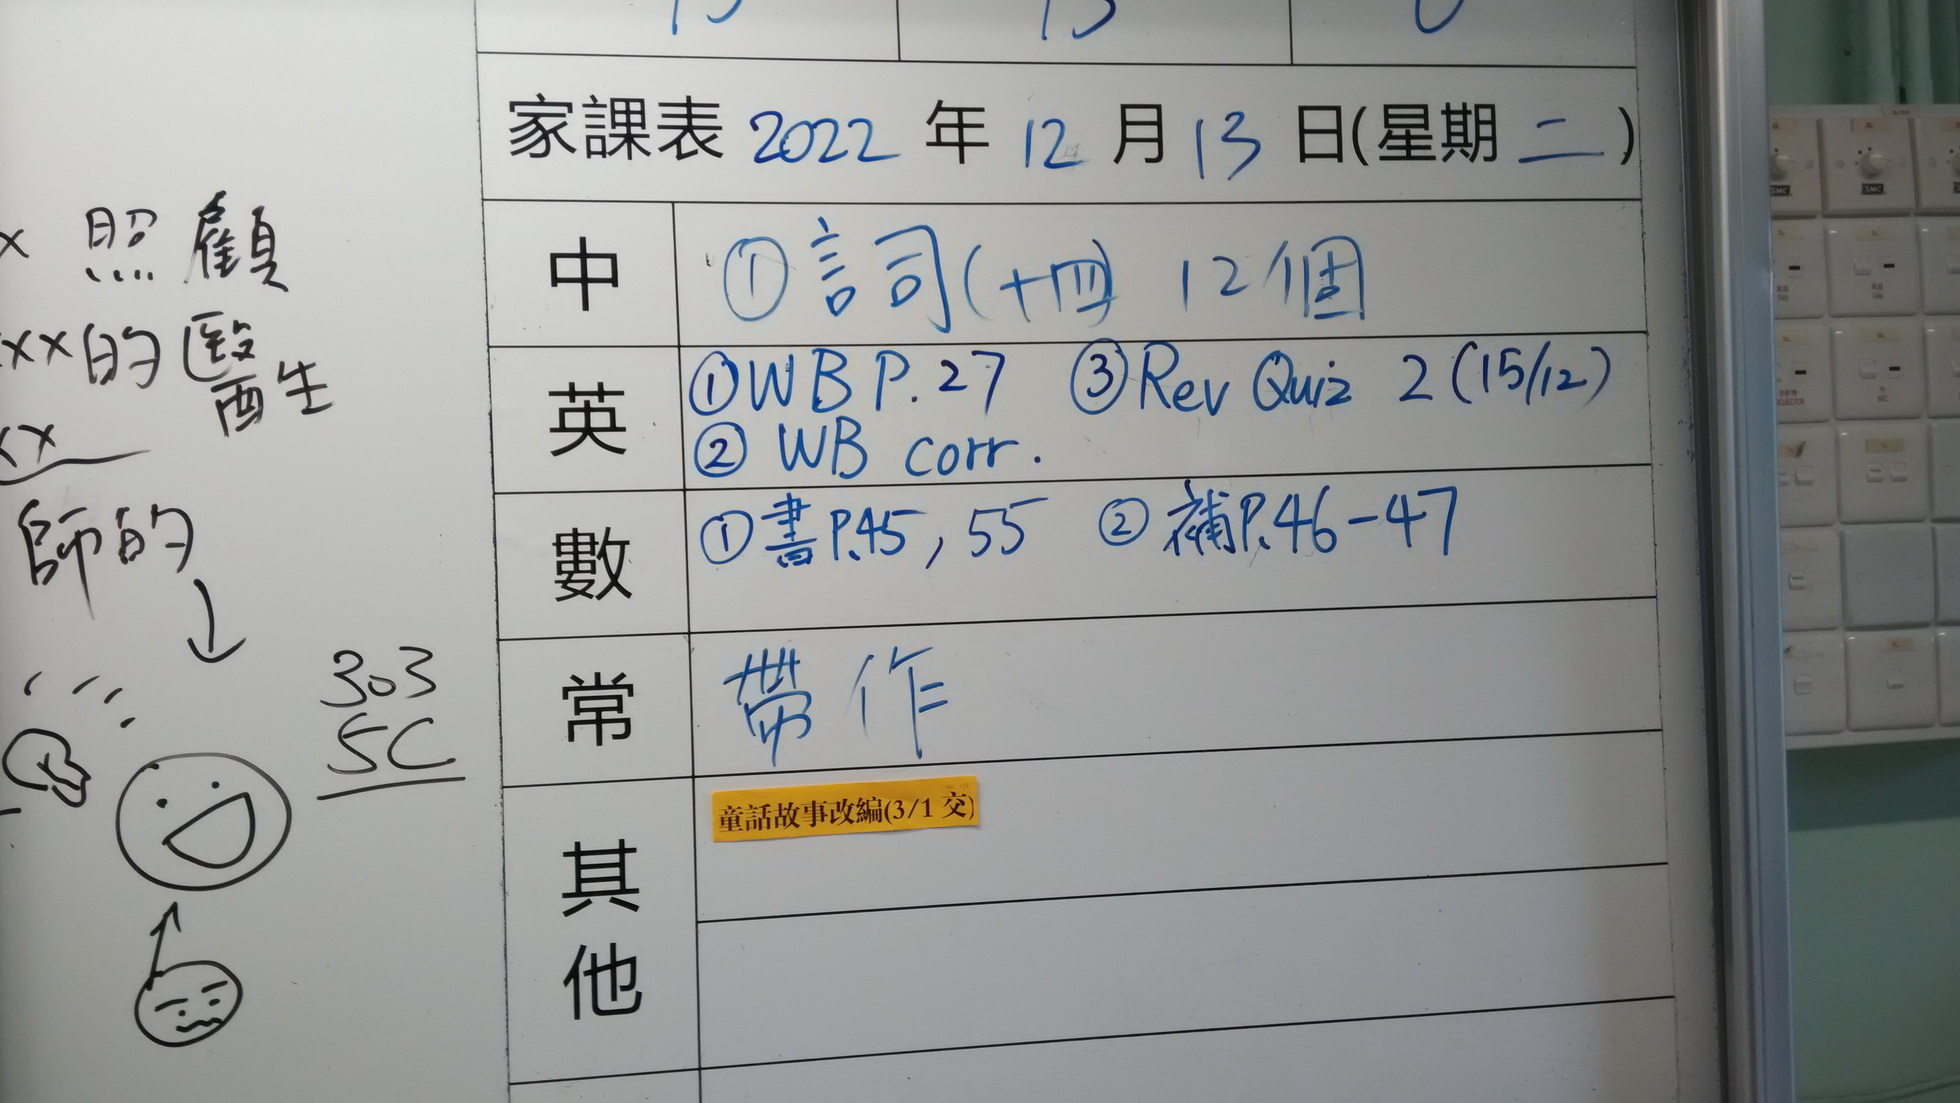 家課表 2022 年 12 月 13 日(星期 二)
中 ① 詞(十四) 12個
英 ① WB P.27 ③ Rev Quiz 2 (15/12)
② WB corr.
數 ① 書P.45, 55 ② 補P.46-47
常 帶作
其他 童話故事改編(3/1 交)
x 照顧
xx的醫生
xx
師的
303
5C